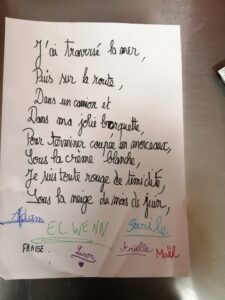 J'ai traversé la mer,
Puis sur la route,
Dans un camion et
Dans ma jolie barquette,
Pour terminer coupée en morceaux,
Sous la crème blanche,
Je suis toute rouge de timidité,
Sous la neige du mois de juin,
Adam
ELWENN
Basile
Lison
Armelle
Maël